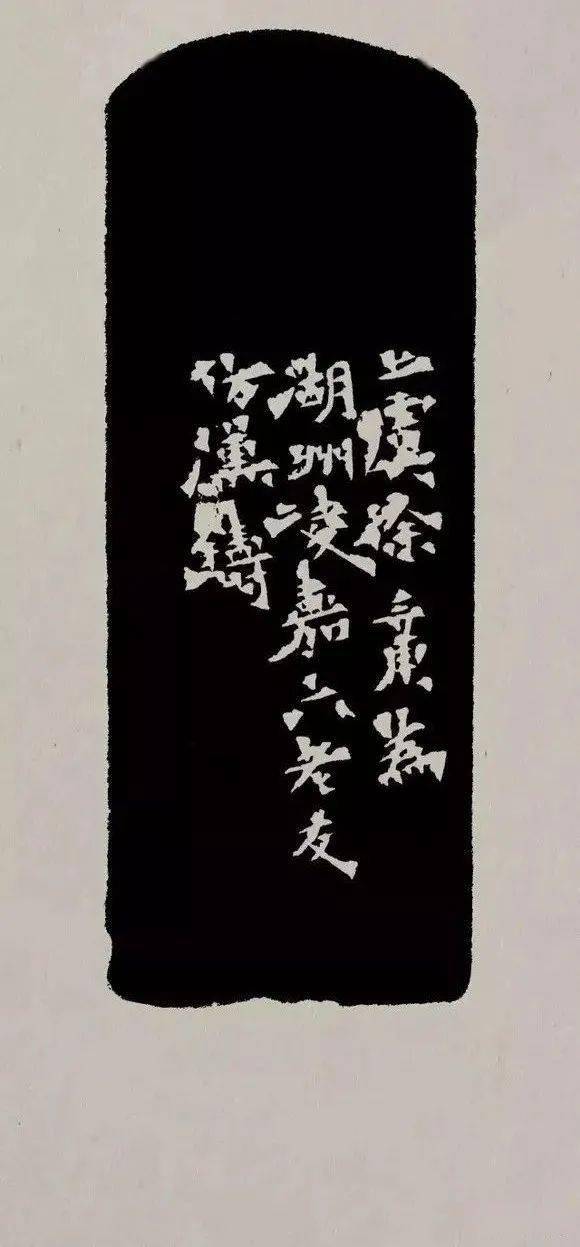 上虞徐三庚為
湖州凌嘉六老友
仿漢鑄